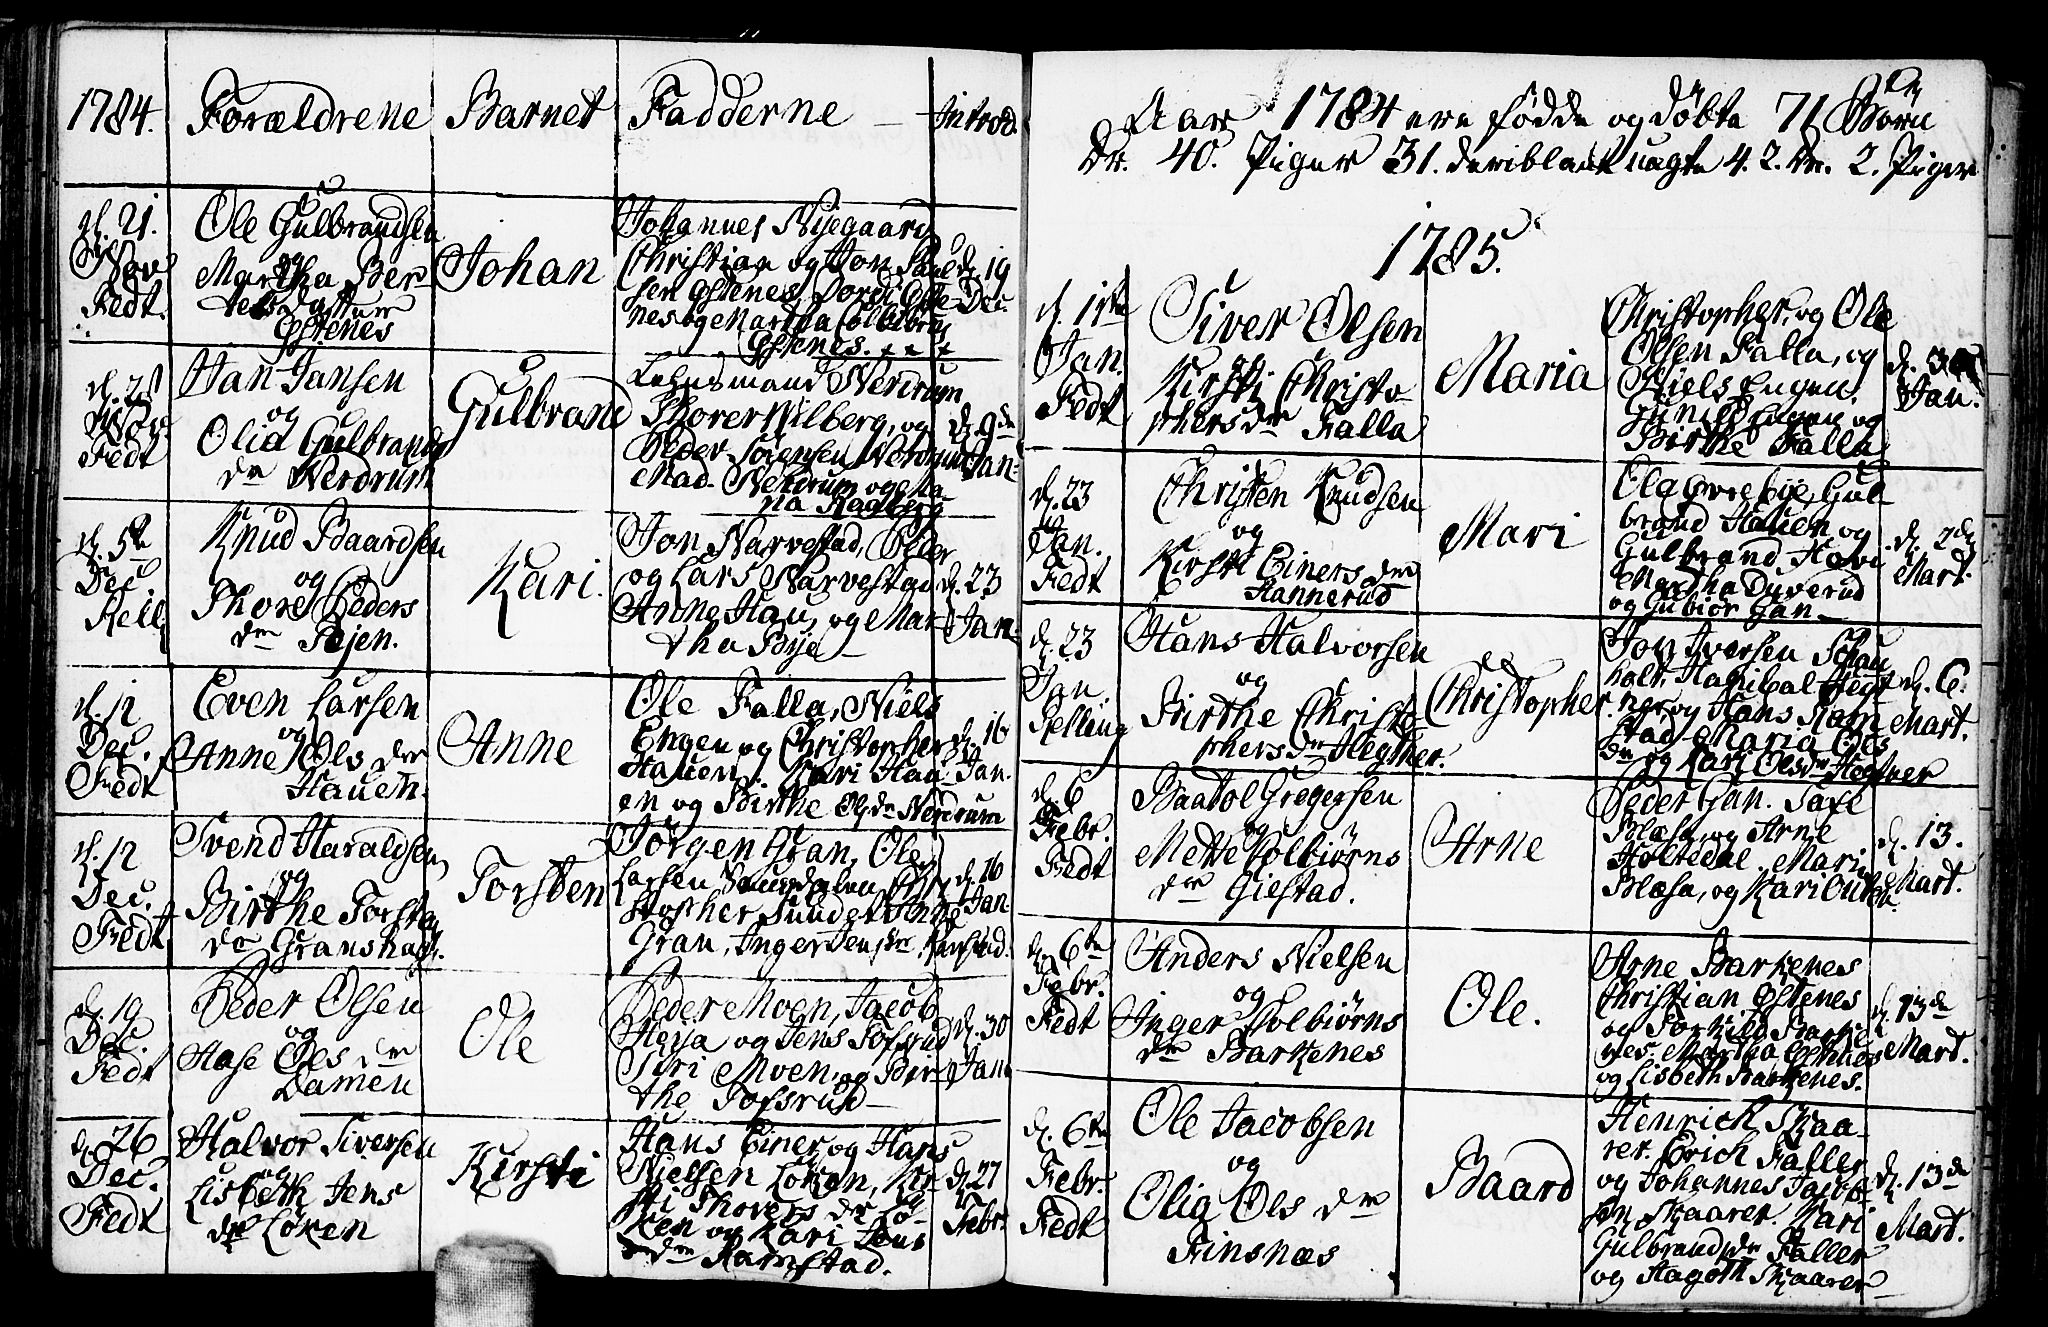 1784. Forældrene Barnet Fadderne Introd.
d. 21.
Nov
Fedt.
Ole Gulbrandsen
og
Martha Ber-
tels datter
Østenes
Johan
Johannes Nyegaard
Christian og Jon Paul-
sen Østenes, Dordi Øste-
nes og Martha Colbiørns
Østenes.
d. 19
Dec.
d. 28
Nov.
Fedt
Jan Jansen
og
Olia Gulbrands
dr Nerdrum
Gulbrand
Lehnsmand Nerdrum
Thorer Wilberg, og
Peder Sörensen Nerdrum
Mad. Nerdrum og Ma-
ria Kagberg
d. 9de
Jan-
d. 5te
Dec
Knud Baardsen
og
Thore Peders
dr Tejen.
Kari.
Jon Narvestad, Peder
og Lars Narvestad
Anne Hau, og Mar-
tha Bye
d. 23
Jan-
d. 12
Dec.
Fedt
Even Larsen
og
Anne Ols dr
Hauen.
Anne
Ole Falla, Niels
Engen og Christopher
Hauen. Kari Hau-
en og Birthe Ols dr Nerdrum
d. 16
Jan.
d. 12
Dec.
Fedt
Svend Haraldsen,
og
Birthe Torsten
dr Granshagt.
Torsten
Jörgen Gran, Ole
Larsen Vaugdalen, Chri-
stopher Sundet Anne
Gran, Inger Jens dr
d. 16
Jan
d. 19
Dec
Fedt
Peder Olsen
og
Aase Ols dr
Damen
Ole
Peder Moen, Jacob
Heja og Jens Tofsrud
Siri Moen, og Bir-
the Tofsrud
d. 30
Jan
d. 26
Dec.
Fedt
Halvor Siversen
og
Lisbeth Jens
dr Löken
Kirsti
Hans Einer og Hans
Nielsen Löken, Kir-
sti Thorers dr Lö-
ken og Kari Jens
dr Ramstad.
d. 27
Febr.
Aar 1784 ere födde og döbte 71 Börn
Dr. 40. Piger 31. deriblant uægte 4. 2. Dr. 2. Piger
1785.
d. 1ste
Jan.
Fedt
Siver Olsen
og
Kirsti Christo-
phers dr Falla
Maria
Christopher, og Ole
Olsen Falla, og
Niels Engen.
Gunild Engen og
Birthe Falla
d. 30
Jan.
d. 23
Jan.
Fedt
Christen Knudsen
og
Kirsti Einers dr
Hannerud
Mari
Ola Gvrebye, Gul-
brand Hauen og
Gulbrand Hovi.
Martha Dyverud
og Gubiör Gan
d. 2den
Mart.
d. 23
Jan.
Relling
Hans Halvorsen
og
Birthe Christo-
phers dr Hegtner.
Christopher.
Jon Iversen Schau
holt, Hanibal Hegt-
ner, og Hans Ram
stad. Maria Ols
dr og Kari Ols dr Hegtner
d. 6.
Mart.
d. 6
Febr.
Fedt
Baatol Gregersen
og
Mette Colbiörns
dr Giestad.
Arne
Peder Gan. Taxe
Blæsa, og Arne
Holtedal. Mari
Blæsa, og Kari
d. 13.
Mart.
d. 6te
Febr.
Fedt
Anders Nielsen
og
Inger Colbiörns
dr Barkenes
Ole.
Arne Barkenes
Christian Östenes
og Torkild Barke-
nes. Martha Östnes
og Lisbeth Barkenes.
d. 13de
Mart.
d. 6te
Febr.
Fedt
Ole Jacobsen
og
Olia Ols dr
Finsnæs
Baard
Henrich Skaa-
rer. Erich Faller
og Johannes Jacob-
sen Skaarer. Kari
Gulbrands dr Faller
og Aagoth Skaarer
d. 13de
Mart.